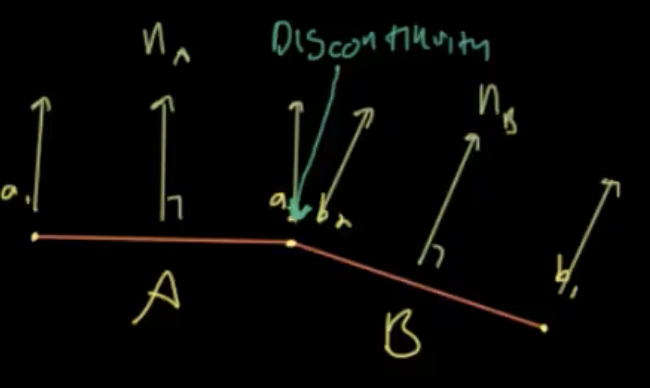 n_A
Discontinuity
n_B
a_1
a_2
b_2
b_1
A
B